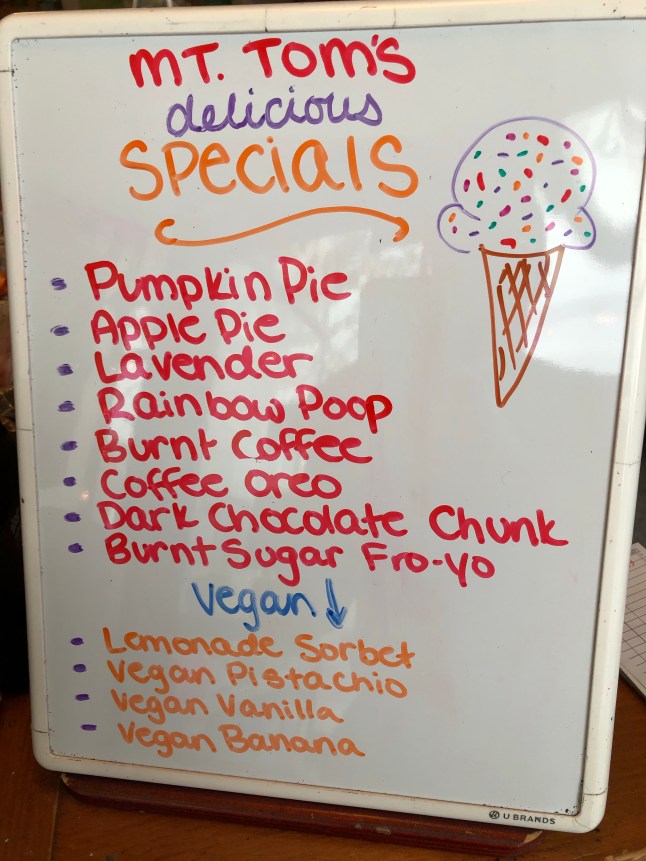 MT. TOM'S
delicious
SPecials
Pumpkin Pie
Apple Pie
Lavender
Rainbow Poop
Burnt Coffee
Coffee Oreo
Dark Chocolate Chunk
Burnt Sugar Fro-yo
Vegan ↓
Lemonade Sorbet
Vegan Pistachio
Vegan Vanilla
Vegan Banana
U BRANDS